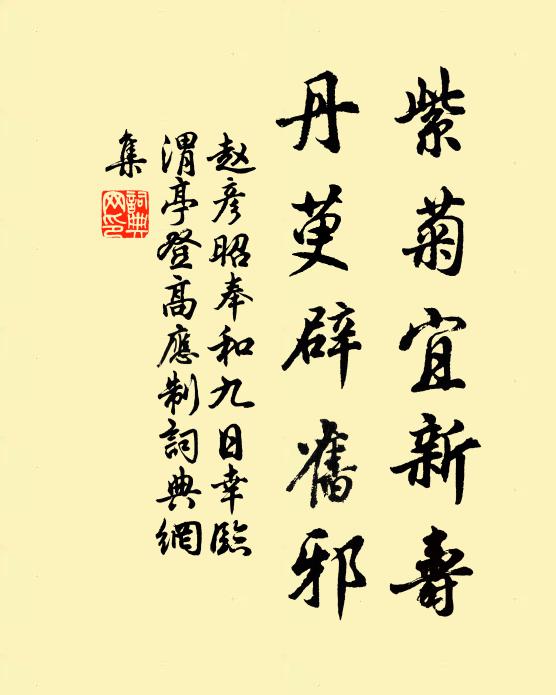 紫菊宜新壽
丹萸辟舊邪
赵彦昭奉和九日幸臨
渭亭登高應制詞典網
集
詞典
网印